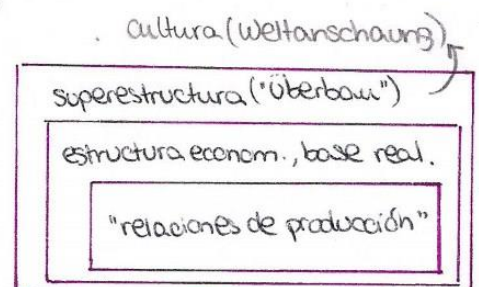 . cultura (Weltanschaung)
superestructura ("Überbau")
estructura econom., base real.
"relaciones de producción"